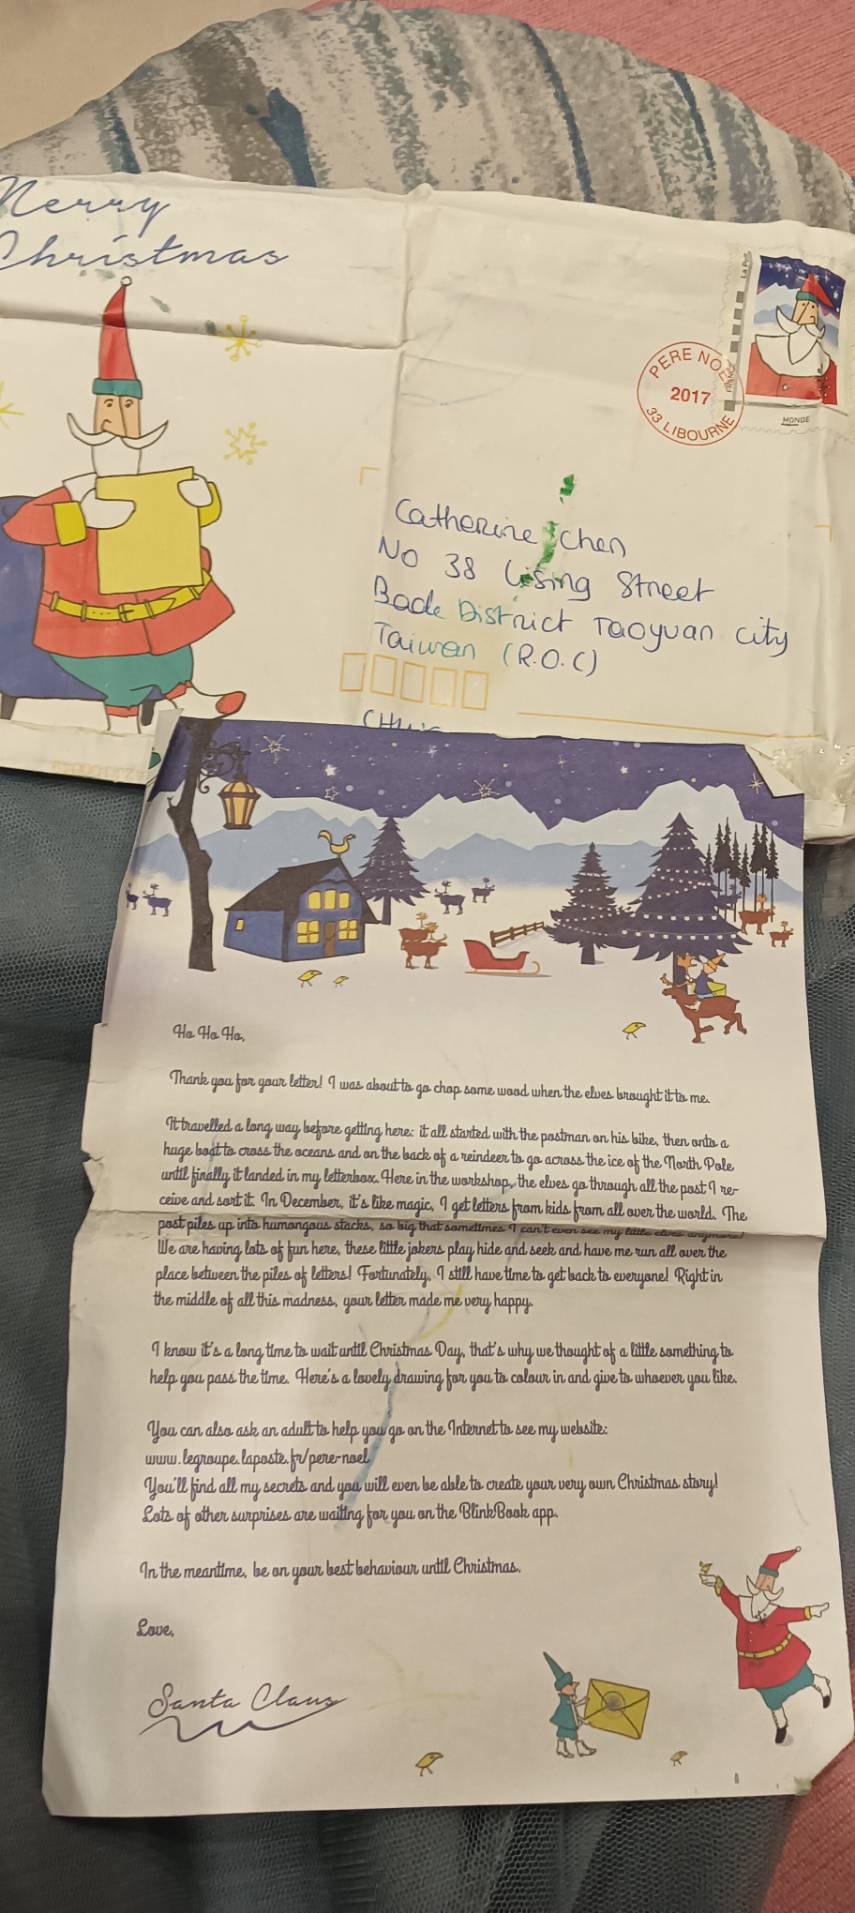 Merry
Christmas
La Poste
PERE NOEL
2017
33 LIBOURNE
FRANCE
MONDE
Catherine Chen
No 38 Street
Bade District Taoyuan City
Taiwan (R.O.C)
Ho Ho Ho,
Thank you for your letter! I was about to go chop some wood when the elves brought it to me.
It travelled a long way before getting here: it all started with the postman on his bike, then onto a
huge boat to cross the oceans and on the back of a reindeer to go across the ice of the North Pole
until finally it landed in my letterbox. Here in the workshop, the elves go through all the post I re-
ceive and sort it. In December, it's like magic, I get letters from kids from all over the world. The
post piles up into humongous stacks, so big that sometimes I can't even see my little elves anymore!
We are having lots of fun here, these little jokers play hide and seek and have me run all over the
place between the piles of letters! Fortunately, I still have time to get back to everyone! Right in
the middle of all this madness, your letter made me very happy.
I know it's a long time to wait until Christmas Day, that's why we thought of a little something to
help you pass the time. Here's a lovely drawing for you to colour in and give to whoever you like.
You can also ask an adult to help you go on the Internet to see my website:
www.legroupe.laposte.fr/pere-noel
You'll find all my secrets and you will even be able to create your very own Christmas story!
Lots of other surprises are waiting for you on the BlinkBook app.
In the meantime, be on your best behaviour until Christmas.
Love,
Santa Claus